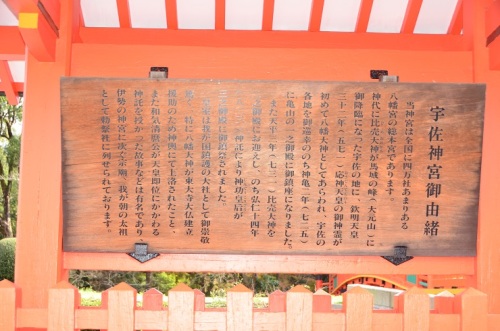 宇佐神宮御由緒
当神宮は全国に四万社あまりある
八幡宮の総本宮であります。
神代に比売大神が馬城の峰（大元山）に
御降臨になった宇佐の地に 欽明天皇
三十二年（五七一）応神天皇の御神霊が
初めて八幡大神としてあらわれ、宇佐の
各地を御巡幸ののち神亀二年（七二五）
に亀山の一之御殿に御鎮座になりました。
また天平三年（七三一）比売大神を
二之御殿にお迎えし、のち弘仁十四年
神託により神功皇后が
三之御殿に御鎮祭されました。
我が国鎮護の大社として御崇敬
特に八幡大神が東大寺大仏建立
援助のため神例にて上洛されたこと、
また和気清麿公が天皇即位にかかわる
神託を授かった故事などは有名であり
伊勢の神宮に次ぐ宗廟、我が朝の太祖
として勅祭社に列せられております。